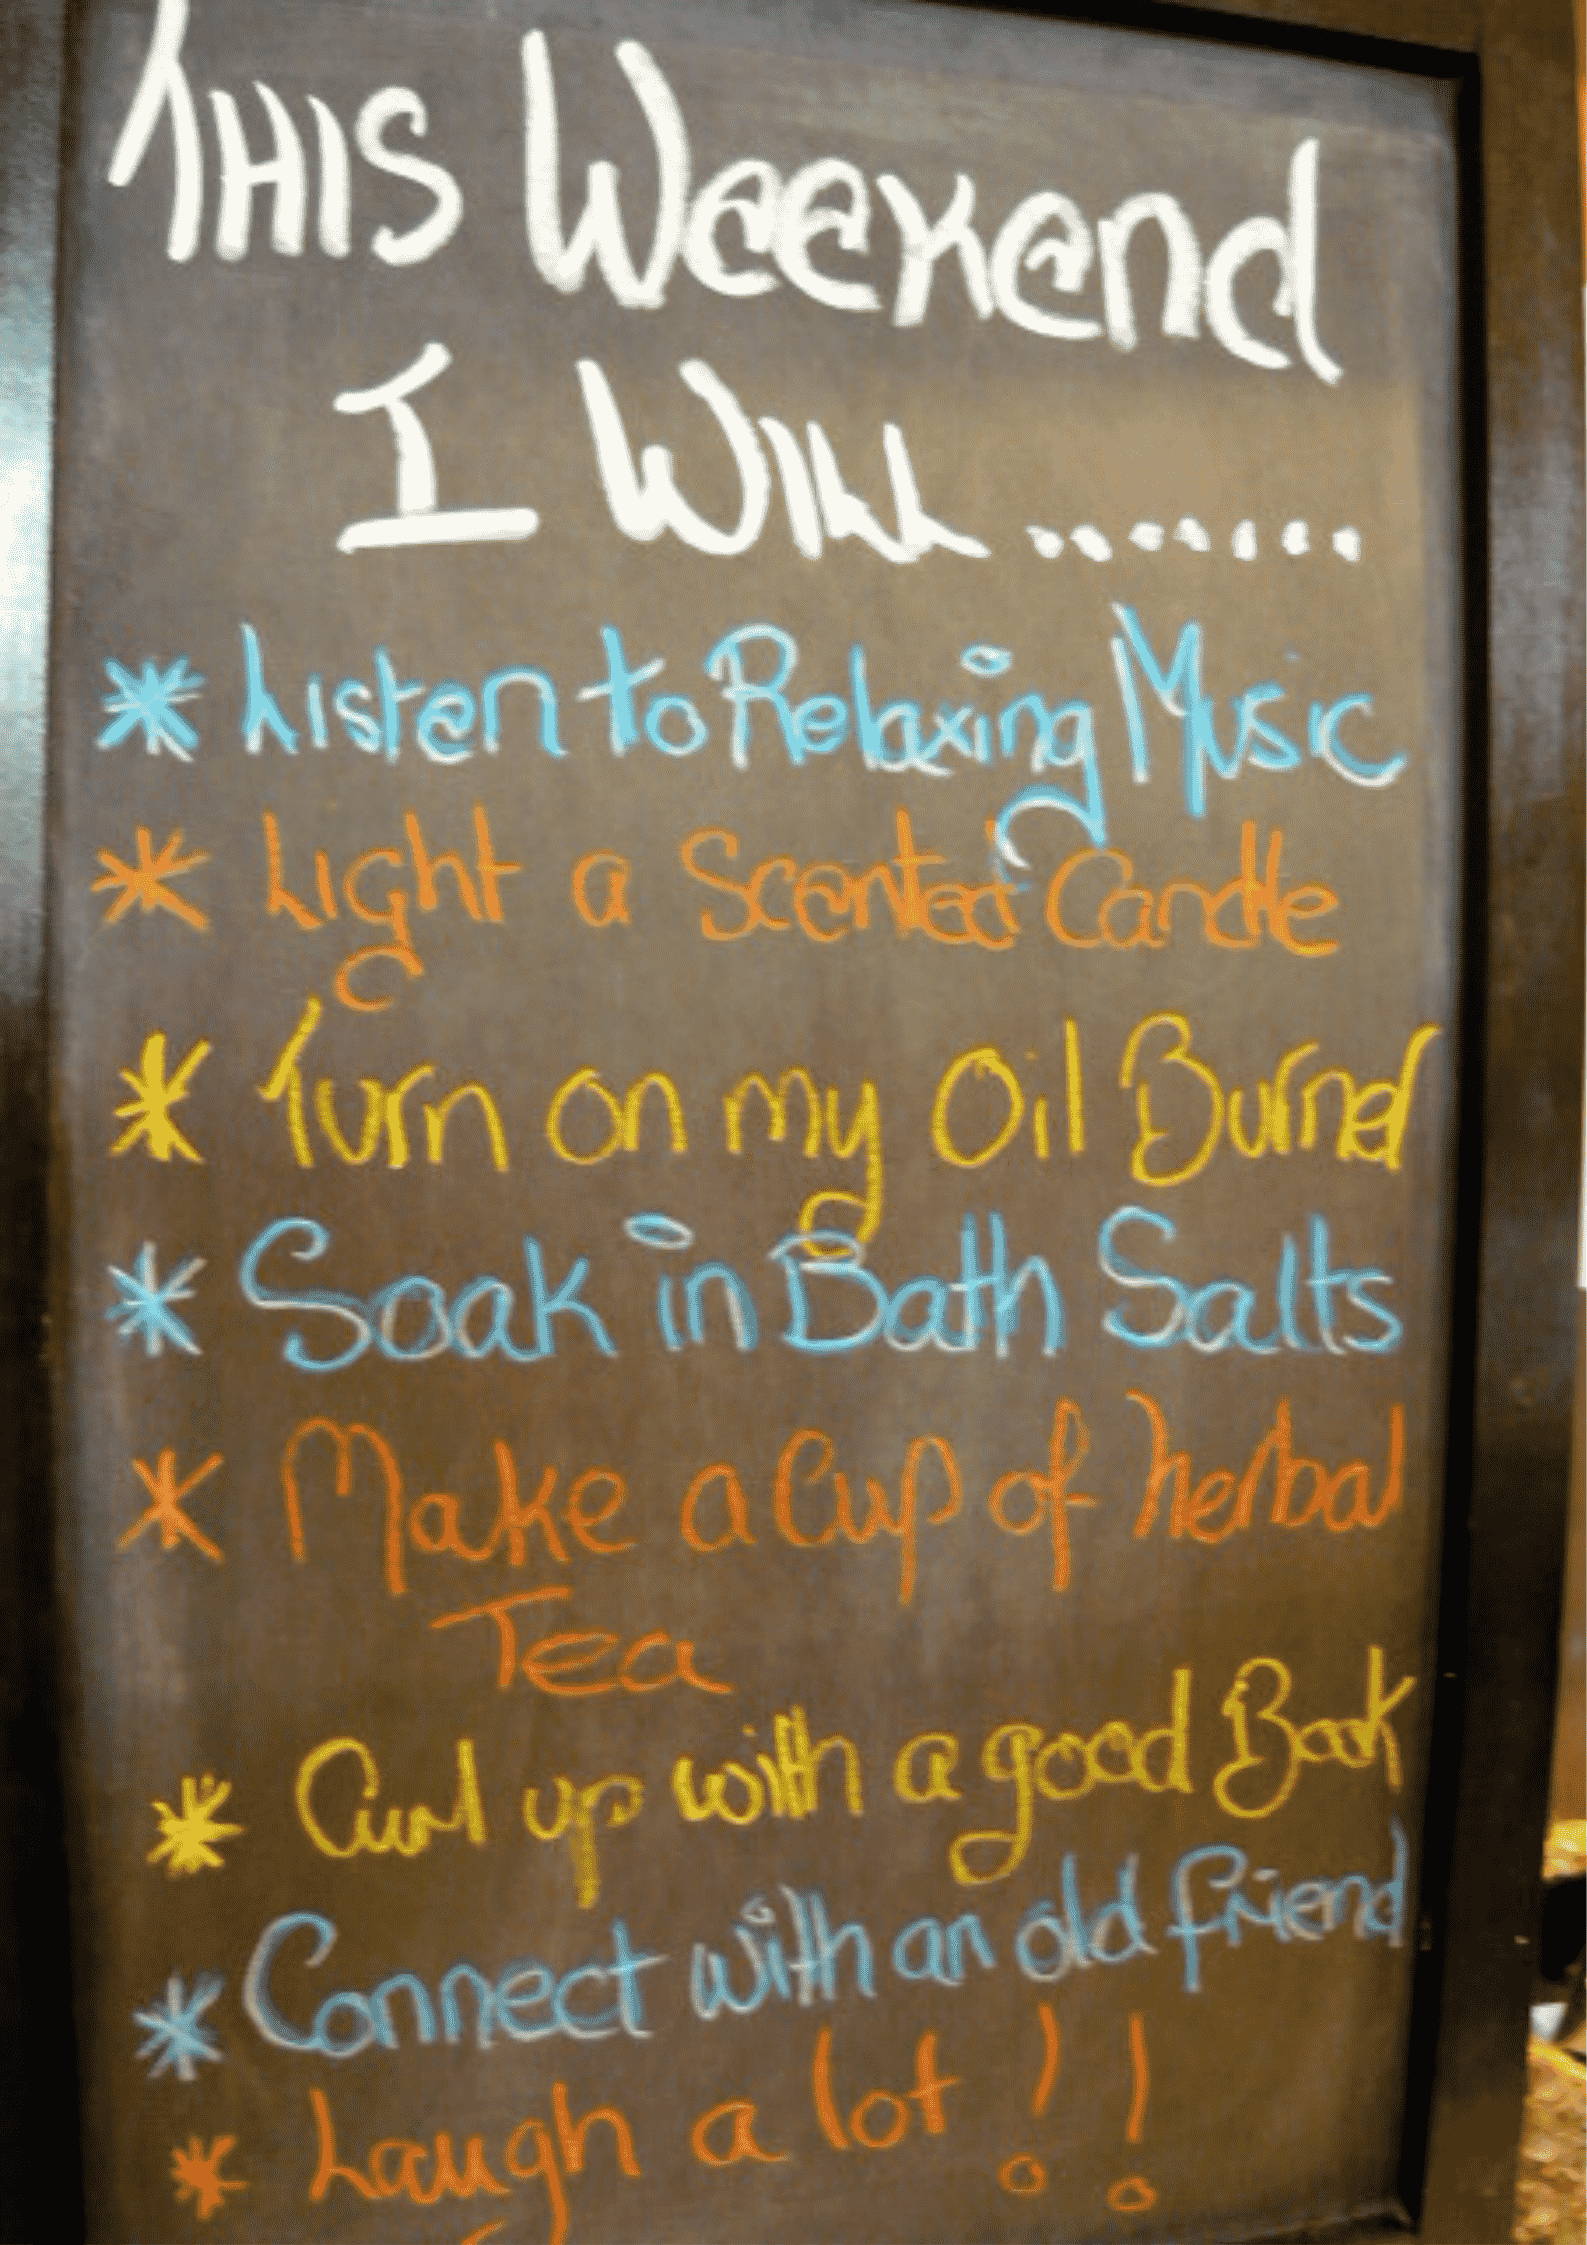 THIS Weekend
I Will.......
* Listen to Relaxing Music
* Light a Scented Candle
* Turn on my Oil Burner
* Soak in Bath Salts
* Make a Cup of herbal
Tea
* Curl up with a good Book
* Connect with an old friend
* Laugh a lot!!